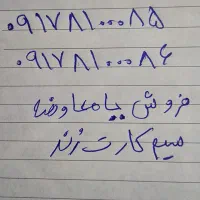 ۰۹۱۷۸۱۰۰۰۸۵
۰۹۱۷۸۱۰۰۰۸۶
فروش یا معاوضه
سیم کارت رُند